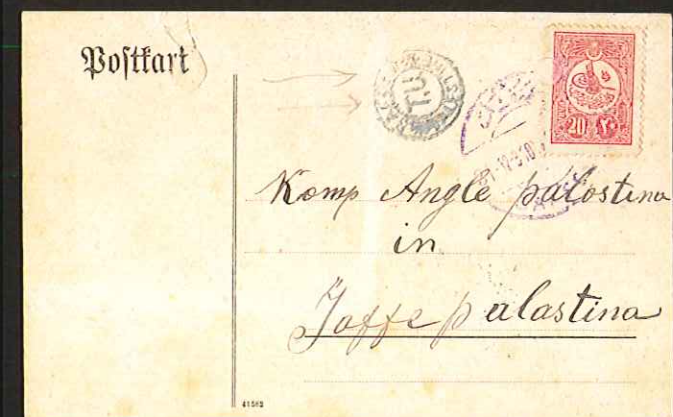 Postkart
20 ٢٠
Komp Angle palostina
in
Jaffe palastina
41582